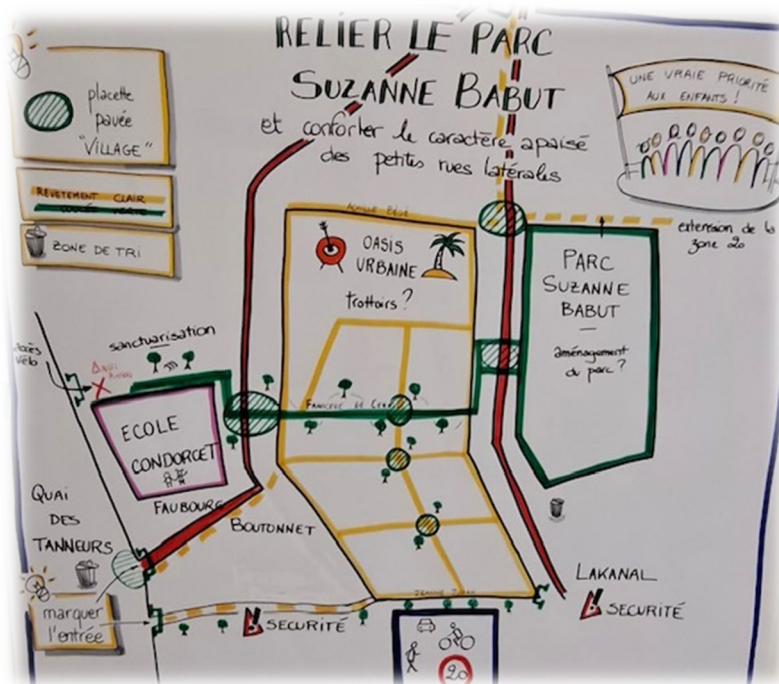 RELIER LE PARC
SUZANNE BABUT
et conforter le caractère apaisé
des petites rues latérales
placette
pavée
"VILLAGE"
REVETEMENT CLAIR
ZONE DE TRI
UNE VRAIE PRIORITÉ
AUX ENFANTS !
extension de la
zone 20
OASIS
URBAINE
trottoirs ?
PARC
SUZANNE
BABUT
aménagement
du parc ?
sanctuarisation
vélo
ECOLE
CONDORCET
FAUBOURG
BOUTONNET
QUAI
DES
TANNEURS
marquer
l'entrée
SECURITÉ
LAKANAL
SECURITÉ
20